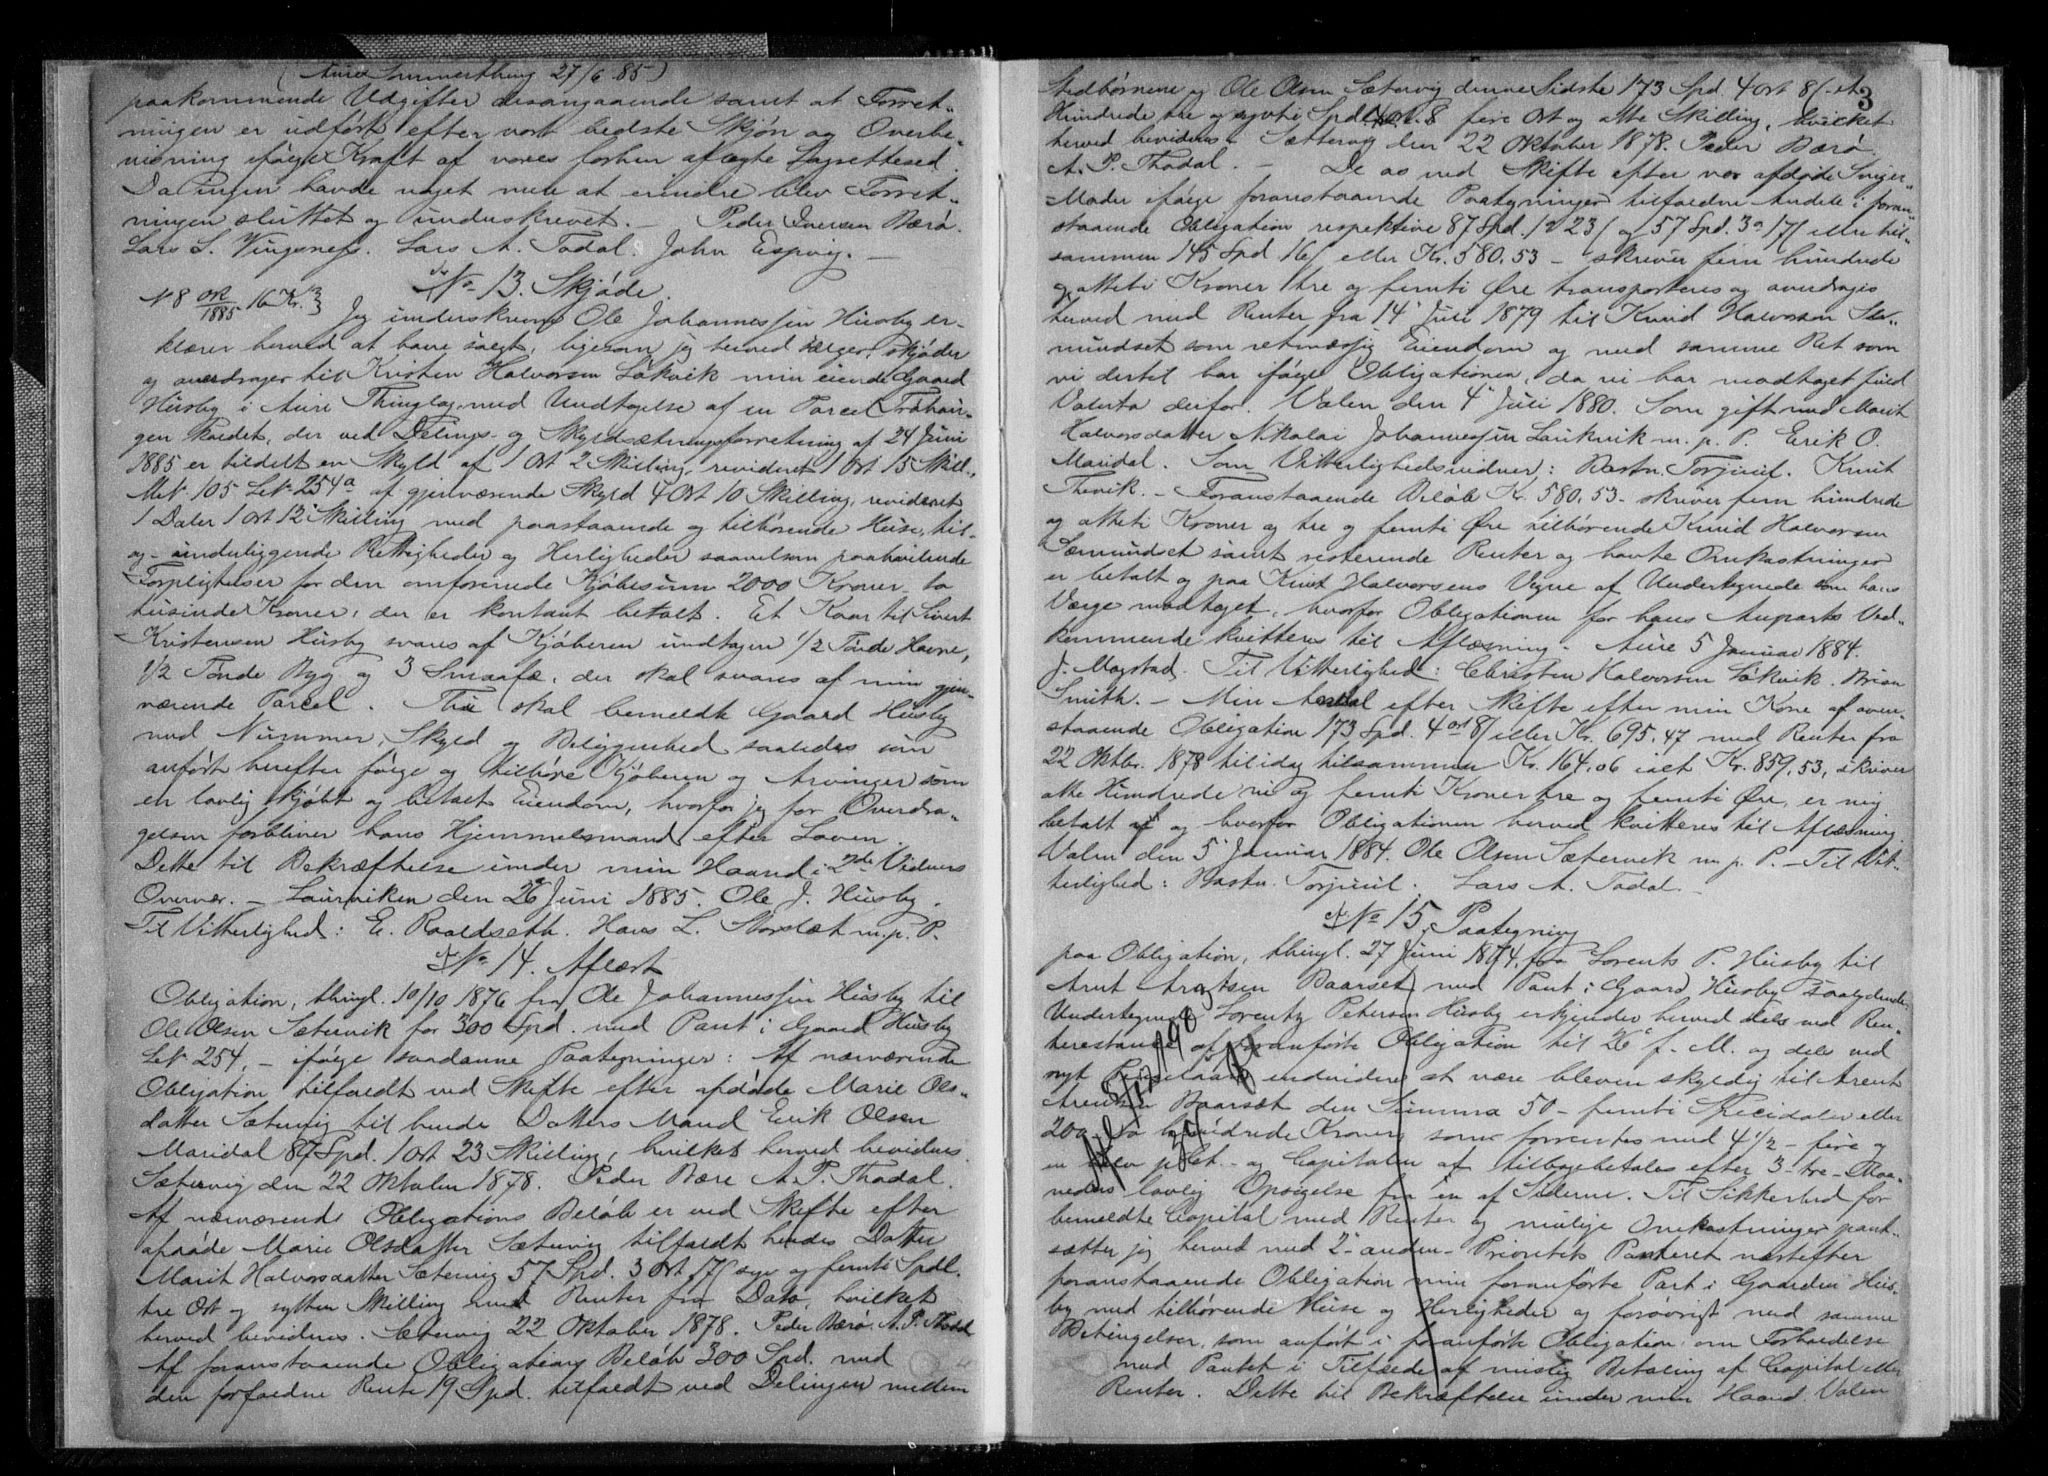 (Aure Sommerthing 27/6 85)
paakommende Udgifter desangaaende samt at Forret-
ningen er udført efter vort bedste Skjøn og Overbe-
visning ifølge Kraft af vores forhen aflagte Lagretteed.
Da ingen havde noget mere at erindre blev Forret-
ningen sluttet og underskrevet. — Peder Iversen Bærø.
Lars L. Vingsnes. Lars A. Todal. John Espvig. —
No 13. Skjøde.
N 8 16 Kr.
1885
Jeg underskrevne Ole Johannessen Husby er-
klærer herved at have solgt, ligesom jeg herved sælger, skjøder
og overdrager til Kristen Halvorsen Løkvik min eiende Gaard
Husby i Aure Thinglag med Undtagelse af en Parcel Trøhau-
gen kaldet, der ved Delings- og Skyldsætningsforretning af 24 Juni
1885 er tildelt en Skyld af 1 Ort 2 Skilling, revideret 1 Ort 15 Skill.,
Mt. 105 Lt. 254a af gjenværende Skyld 4 Ort 10 Skilling, revideret
1 Daler 1 Ort 12 Skilling med paastaaende og tilhørende Huse, til-
og underliggende Rettigheder og Herligheder saavelsom paahvilende
Forpligtelser for den omforenede Kjøbesum 2000 Kroner to
tusinde Kroner, der er kontant betalt. Et Kaar til Sivert
Kristensen Husby svares af Kjøberen undtagen 1/2 Tønde Havre,
1/2 Tønde Byg og 3 Smaafæ, der skal svares af min gjen-
værende Parcel. Thi skal bemeldte Gaard Husby
med Nummer, Skyld og Beliggenhed saaledes som
anført herefter følge og tilhøre Kjøberen og Arvinger som
en lovlig kjøbt og betalt Eiendom, hvorfor jeg for Overdra-
gelsen forbliver hans Hjemmelsmand efter Loven.
Dette til Bekræftelse under min Haand i 2de Vidners
Overvær. — Laurviken den 26 Juni 1885. Ole J. Husby.
Til Vitterlighed: E. Raaldseth. Hans L. Storslæt m. p. P.
No 14. Aflæst
Obligation, thingl. 10/10 1876 fra Ole Johannessen Husby til
Ole Olsen Sætervik for 300 Spd. med Pant i Gaard Husby
Lt 254, — ifølge saadanne Paategninger: Af nærværende
Obligation tilfaldt ved Skifte efter afdøde Marie Ols-
datter Sætervig til hendes Datters Mand Erik Olsen
Maridal 87 Spd. 1 Ort 23 Skilling, hvilket herved bevidnes.
Sætervig den 22 Oktober 1878. Peder Bærø A. P. Thodal.
Af nærværende Obligations Beløb er ved Skifte efter
afdøde Marie Olsdatter Sætervig tilfaldt hendes Datter
Marit Halvorsdatter Sætervig 57 Spd. 3 Ort 17/ syv og femti Spdl.
tre Ort og sytten Skilling med Renter fra Dato, hvilket
herved bevidnes. Sætervig 22 Oktober 1878. Peder Bærø. A. P. Thodal
Af foranstaaende Obligations Beløb 300 Spd. med
den forfaldne Rente 19 Spd. tilfaldt ved Delingen mellem
3
Stedbørnene og Ole Olsen Sætervig denne Sidste 173 Spd. 4 Ort 8/ et
Hundrede tre og syvti Spd. fire Ort og otte Skilling, hvilket
herved bevidnes. Sættervig den 22 Oktober 1878. Peder Bærø.
A. P. Thodal. — De os ved Skifte efter vor afdøde Sviger-
Moder ifølge foranstaaende Paategninger tilfaldne Andele i foran-
staaende Obligation respektive 87 Spd. 1 o 23/ og 57 Spd. 3 o 17/ eller til-
sammen 145 Spd 16/ eller Kr. 580,53 — skriver fem hundrede
og otteti Kroner tre og femti Øre transporteres og overdrages
herved med Renter fra 14 Juli 1879 til Knud Halvorsen Sæ-
mundset som retmæssig Eiendom og med samme Ret som
vi dertil har ifølge Obligationen, da vi har modtaget fuld
Valuta derfor. Valen den 4 Juli 1880. Som gift med Marit
Halvorsdatter Nikolai Johannessen Laukvik m. p. P. Erik O.
Maridal. Som Vitterlighedsvidner: Bastn. Torjuul. Knut
Thevik. — Foranstaaende Beløb Kr. 580,53 — skriver fem hundrede
og otteti Kroner og tre og femti Øre tilhørende Knud Halvorsen
Sæmundset samt resterende Renter og havte Omkostninger
er betalt og paa Knut Halvorsens Vegne af Undertegnede som hans
Værge modtaget, hvorfor Obligationen for hans Anparts Ved-
kommende kvitteres til Aflæsning. Aure 5 Januar 1884.
J. Magstad. Til Vitterlighed: Christen Halvorsen Løkvik. Brian
Smith. — Min Andel efter Skifte efter min Kone af oven-
staaende Obligation 173 Spd. 4 ort 8/ eller Kr. 695.47 med Renter fra
22 Oktbr. 1878 til idag tilsammen Kr. 164,06 ialt Kr. 859,53, skriver
otte Hundrede ni og femti Kroner tre og femti Øre, er mig
betalt og hvorfor Obligationen herved kvitteres til Aflæsning
Valen den 5 Januar 1884. Ole Olsen Sætervik m. p. P. — Til Vit-
terlighed: Bastn. Torjuul. Lars A. Todal. —
No 15. Paategning
paa Obligation, thingl. 27 Juni 1874, fra Lorents P. Husby til
Arnt Arntsen Baarset med Pant i Gaard Husby saalydende:
Undertegnede Lorentz Petersen Husby erkjender herved dels ved Ren-
terestance af foranførte Obligation til 26 f. M. og dels ved
nyt Laan endvidere at være bleven skyldig til Arent
Arentsen Baarsæt den Summa 50 — femti Specidaler eller
200 to hundrede Kroner som forrentes med 4 1/2 — fire og
en halv pCt. — og Capitalen at tilbagebetales efter 3 — tre — Maa-
neders lovlig Opsigelse fra en af Siderne. Til Sikkerhed for
bemeldte Capital med Renter og mulige Omkostninger pant-
sætter jeg herved med 2 — anden — Prioritets Panteret næstefter
foranstaaende Obligation min foranførte Part i Gaarden Hus-
by med tilhørende Huse og Herligheder og forøvrigt med samme
Betingelser, som anført i foranførte Obligation om Forholdelse
med Pantet i Tilfælde af mislig Betaling af Capital eller
Renter. Dette til Bekræftelse under min Haand. Valen